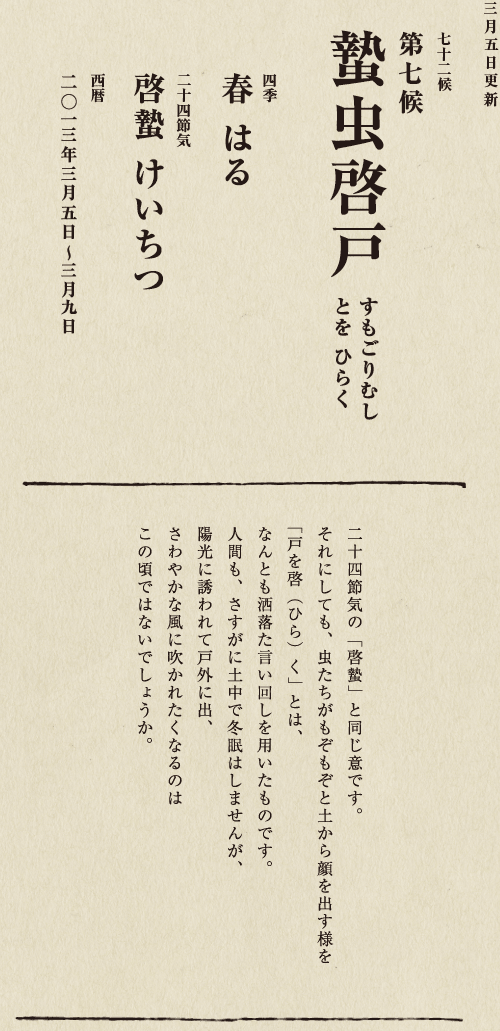 三月五日更新
七十二候
第七候
蟄虫啓戸
すもごりむし
とを ひらく
四季
春 はる
二十四節気
啓蟄 けいちつ
西暦
二〇一三年三月五日～三月九日
二十四節気の「啓蟄」と同じ意です。
それにしても、虫たちがもぞもぞと土から顔を出す様を
「戸を啓（ひら）く」とは、
なんとも洒落た言い回しを用いたものです。
人間も、さすがに土中で冬眠はしませんが、
陽光に誘われて戸外に出、
さわやかな風に吹かれたくなるのは
この頃ではないでしょうか。